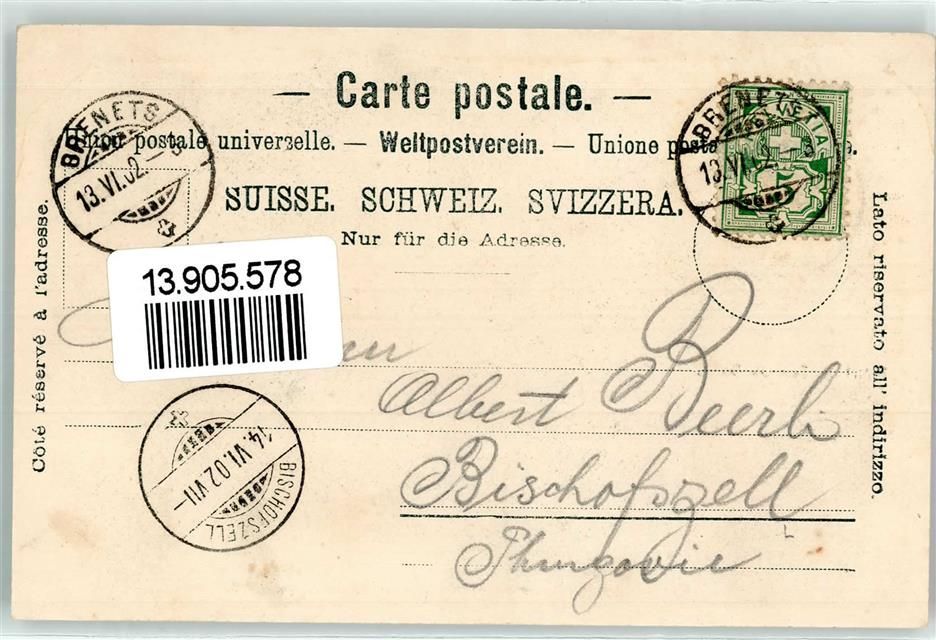 — Carte postale. —
Union postale universelle. — Weltpostverein. — Unione
SUISSE. SCHWEIZ. SVIZZERA.
Nur für die Adresse.
Côté réservé à l'adresse.
Lato riservato all' indirizzo.
BRENETS
13.VI.02.
BRENETS
13.VI.02.
HELVETIA
13.905.578
Albert Beerli
Bischofszell
Thurgovie
14.VI.02.VII—
BISCHOFSZELL